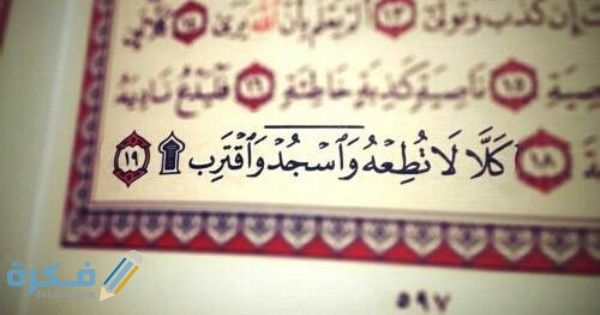 إِن كَذَّبَ وَتَوَلَّىٰٓ ١٣ أَلَمْ يَعْلَم بِأَنَّ ٱللَّهَ يَرَىٰ ١٤ كَلَّا لَئِن
نَاصِيَةٍ كَٰذِبَةٍ خَاطِئَةٍ ١٦ فَلْيَدْعُ نَادِيَهُۥ
١٨ كَلَّا لَا تُطِعْهُ وَٱسْجُدْ وَٱقْتَرِب ۩ ١٩
٥٩٧
فكرة